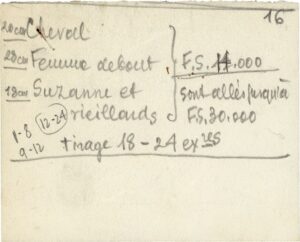 16
20cm Cheval
28cm Femme debout F.S. 14.000
18cm Suzanne et vieillards
sont allés jusqu'à
F.S. 30.000
1-8 12-24
9-12
tirage 18 - 24 exres